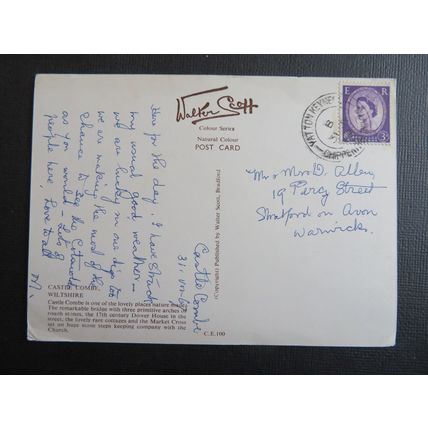 CASTLE COMBE,
WILTSHIRE
Castle Combe is one of the lovely places nature
The remarkable bridge with three primitive arches
rough stones, the 17th century Dower House in the
street, the lovely rare cottages and the Market Cross
set on huge stone steps keeping company with the
Church.
C.E.100
Castle Combe
Here for the day. I have struck
my usual good weather –
we are lucky in our digs too
we are making the most of the
chance to see the Cotswolds
as you would – Lots of
people here, Love to all
M.
(Copyright) Published by Walter Scott, Bradford
Walter Scott
Colour Series
Natural Colour
POST CARD
YATTON KEYNELL
CHIPPENHAM
E R
3D
Mr & Mrs D. Alley
19 Percy Street
Stratford on Avon
Warwicks.